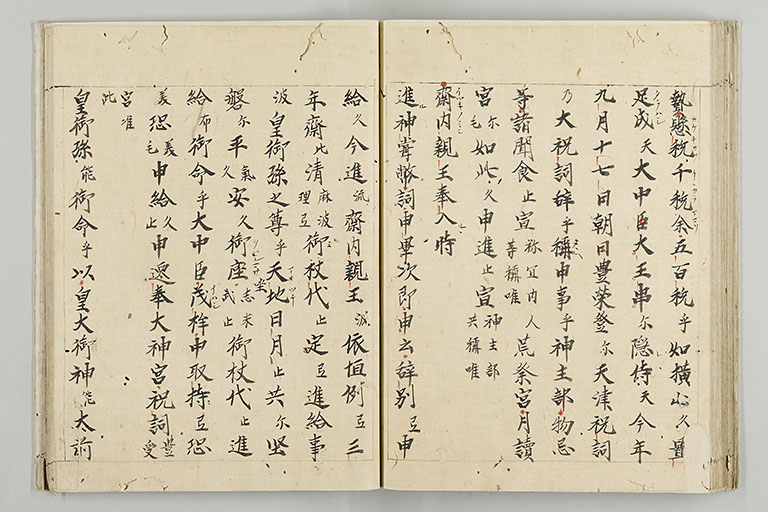 懸税千税余五百税乎如横山久置
足成天大中臣大玉串尓隠侍天今年
九月十七日朝日豊栄登尓天津祝詞
乃大祝詞辞乎稱申事乎神主部物忌
等諸聞食止宣祢宜内人等稱唯荒祭宮月讀
宮尓毛如此久申進止宣神主部共稱唯
齋内親王奉入時
進神嘗幣詞申畢次即申云辞別弖申
給久今進流齋内親王波依恒例弖三
年齋比清麻波理弖御杖代止定弖進給事
波皇御孫之尊乎天地日月止共尓堅
磐尓平氣久安久御座坐志米武止御杖代止進
給布御命乎大中臣茂桙中取持弖恐
美恐美毛申給久止申遷奉大神宮祝詞豊受
宮准此
皇御孫能御命乎以皇大御神能大前